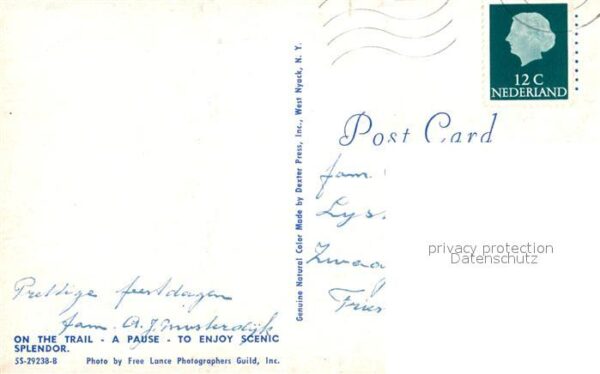 12 C
NEDERLAND
Post Card
Genuine Natural Color Made by Dexter Press, Inc., West Nyack, N. Y.
fam.
Lys
Zwaag
Fries
privacy protection
Datenschutz
Prettige feestdagen
fam. A. J.
ON THE TRAIL - A PAUSE - TO ENJOY SCENIC
SPLENDOR.
5S-29238-B Photo by Free Lance Photographers Guild, Inc.